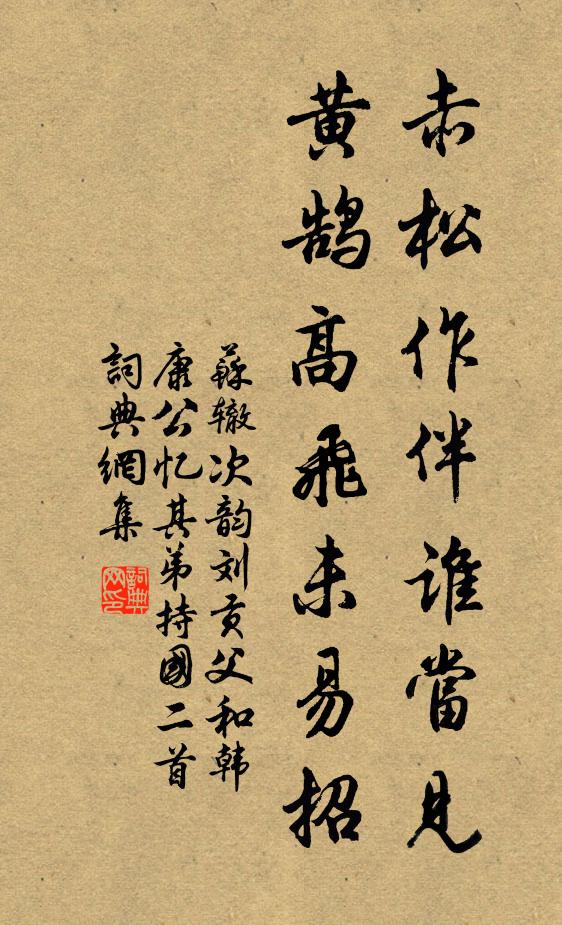 赤松作伴谁當見
黄鹄高飛未易招
蘇辙次韵刘贡父和韩
康公忆其弟持國二首
詞典網集
詞典网印